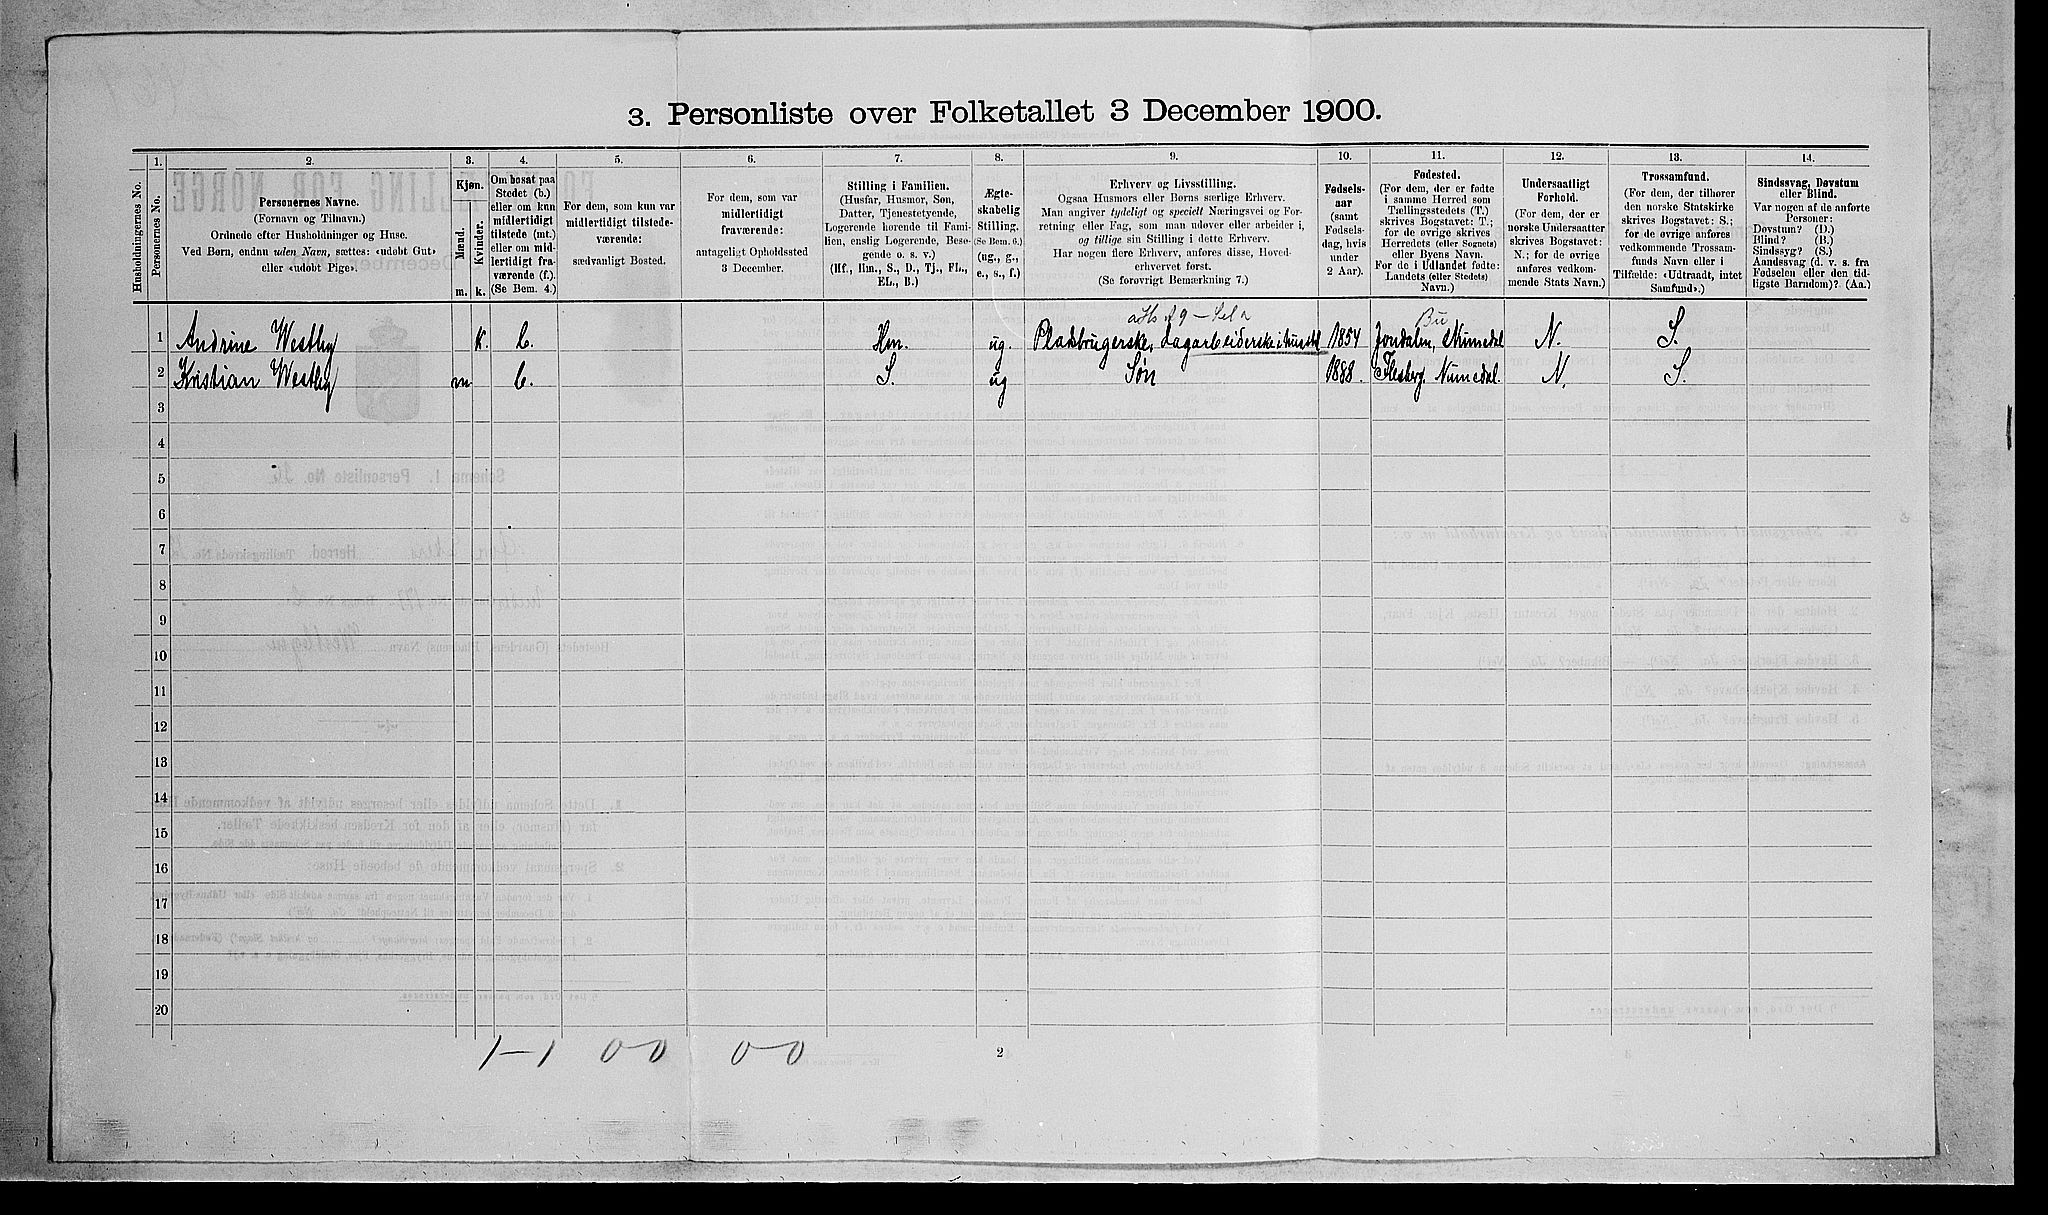 3. Personliste over Folketallet 3 December 1900.
Husholdningernes No.
1.
Personernes No.
2.
Personernes Navne.
(Fornavn og Tilnavn.)
Ordnede efter Husholdninger og Huse.
Ved Børn, endnu uden Navn, sættes: «udøbt Gut»
eller «udøbt Pige».
3.
Kjøn.
Mænd.
Kvinder.
m.
k.
4.
Om bosat paa
Stedet (b.)
eller om kun
midlertidigt
tilstede (mt.)
eller om mid-
lertidigt fra-
værende (f.).
(Se Bem. 4.)
5.
For dem, som kun var
midlertidigt tilstede-
værende:
sædvanligt Bosted.
6.
For dem, som var
midlertidigt
fraværende:
antageligt Opholdssted
3 December.
7.
Stilling i Familien.
(Husfar, Husmor, Søn,
Datter, Tjenestetyende,
Logerende hørende til Fami-
lien, enslig Logerende, Besø-
gende o. s. v.)
(Hf., Hm., S., D., Tj., FL.,
EL., B.)
8.
Ægte-
skabelig
Stilling.
(Se Bem. 6.)
(ug., g.,
e., s., f.)
9.
Erhverv og Livsstilling.
Ogsaa Husmors eller Børns særlige Erhverv.
Man angiver tydeligt og specielt Næringsvei og For-
retning eller Fag, som man udøver eller arbeider i,
og tillige sin Stilling i dette Erhverv.
Har nogen flere Erhverv, anføres disse, Hoved-
erhvervet først.
(Se forøvrigt Bemærkning 7.)
10.
Fødsels-
aar
(samt
Fødsels-
dag, hvis
under
2 Aar).
11.
Fødested.
(For dem, der er fødte
i samme Herred som
Tællingsstedets (T.)
skrives Bogstavet: T.;
for de øvrige skrives
Herredets (eller Sognets)
eller Byens Navn.
For de i Udlandet fødte:
Landets (eller Stedets)
Navn.)
12.
Undersaatligt
Forhold.
(For dem, der er
norske Undersaatter
skrives Bogstavet:
N.; for de øvrige
anføres vedkom-
mende Stats Navn.)
13.
Trossamfund.
(For dem, der tilhører
den norske Statskirke
skrives Bogstavet: S.;
for de øvrige anføres
vedkommende Trossam-
funds Navn eller i
Tilfælde: «Udtraadt, intet
Samfund».)
14.
Sindssvag, Døvstum
eller Blind.
Var nogen af de anførte
Personer:
Døvstum? (D.)
Blind? (B.)
Sindssyg? (S.)
Aandssvag (d. v. s. fra
Fødselen eller den tid-
ligste Barndom)? (Aa.)
Bu
1 Andrine Westby k. b. Hm. ug. Pladsbrugerske, Dagarbeiderske i 1854 Jondalen, Numedal N. S.
2 Kristian Westby m b. S. ug Søn 1888. Flesberg. Numedal. N. S.
3
4
5
6
7
8
9
10
11
12
13
14
15
16
17
18
19
20
1-1 0-0 0-0
2